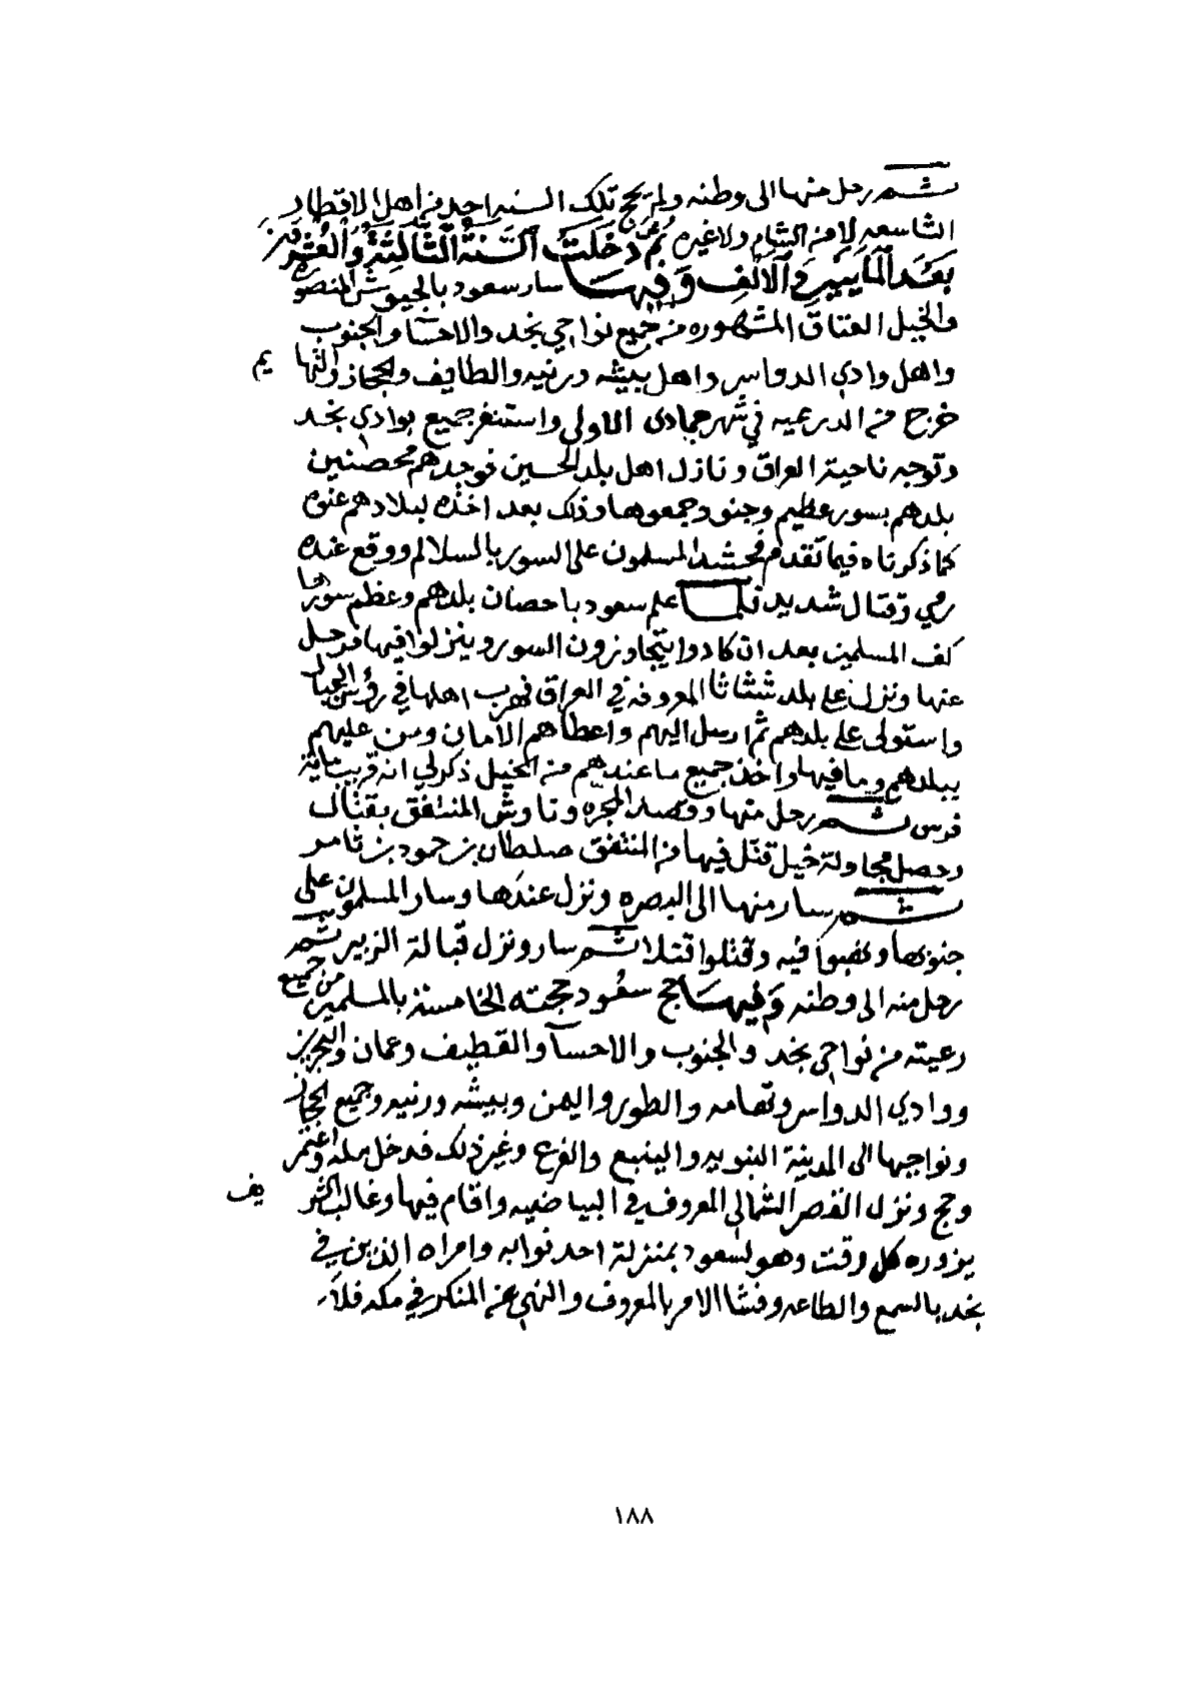 ثم رحل منها الى وطنه ولم يحج تلك السنه احد من اهل الاقطار
الشاسعه لا من الشام ولا غيره ثم دخلت السنة الثالثة والعشرين
بعد المايتين والالف وفيها سار سعود بالجيوش المنصوره
والخيل العتاق المشهوره من جميع نواحي نجد والاحسا والجنوب
واهل وادي الدواسر واهل بيشه ورنيه والطايف والحجاز والتهايم
خرج من الدرعيه في شهر جمادى الاولى واستنفر جميع بوادي نجد
وتوجه ناحية العراق ونازل اهل بلد الحسين فوجدهم محصنين
بلدهم بسور عظيم وجنو وجمعوها وذلك بعد اخذه لبلادهم عنوه
كما ذكرناه فيما تقدم فحشد المسلمون على السور بالسلالم ووقع عنده
رمي وقتال شديد فلما علم سعود باحصان بلدهم وعظم سورها
كف المسلمين بعد ان كادوا يتجاوزون السور وينزلوا فيها فرحل
عنها ونزل على بلد شثاثا المعروفه في العراق فهرب اهلها في رؤس الجبال
واستولى على بلدهم ثم ارسل اليهم واعطاهم الامان ومن عليهم
ببلدهم وما فيها واخذ جميع ما عندهم من الخيل ذكر لي انه قريب ماية
فرس ثم رحل منها وقصد المجره وناوش المنتفق بقتال
وحصل مجاولة خيل قتل فيها من المنتفق صلطان بن حمود بن ثامر
ثم سار منها الى البصره ونزل عندها وسار المسلمون على
جنوبها ونهبوا فيه وقتلوا قتلا ثم سار ونزل قبالة الزبير ثم
رحل منه الى وطنه وفيها حج سعود حجته الخامسة بالمسلمين من جميع
رعيته من نواحي نجد والجنوب والاحسا والقطيف وعمان والبحرين
ووادي الدواسر وتهامه والطور واليمن وبيشه ورنيه وجميع الحجاز
ونواحيها الى المدينة النبويه والينبع والفرع وغير ذلك فدخل مكه واعتمر
وحج ونزل القصر الشمالي المعروف في البياضيه واقام فيها وغالب الشريف
يزوره كل وقت وهو لسعود بمنزلة احد نوابه وامراه الذين في
نجد بالسمع والطاعه وفشا الامر بالمعروف والنهي عن المنكر في مكه فلا
١٨٨